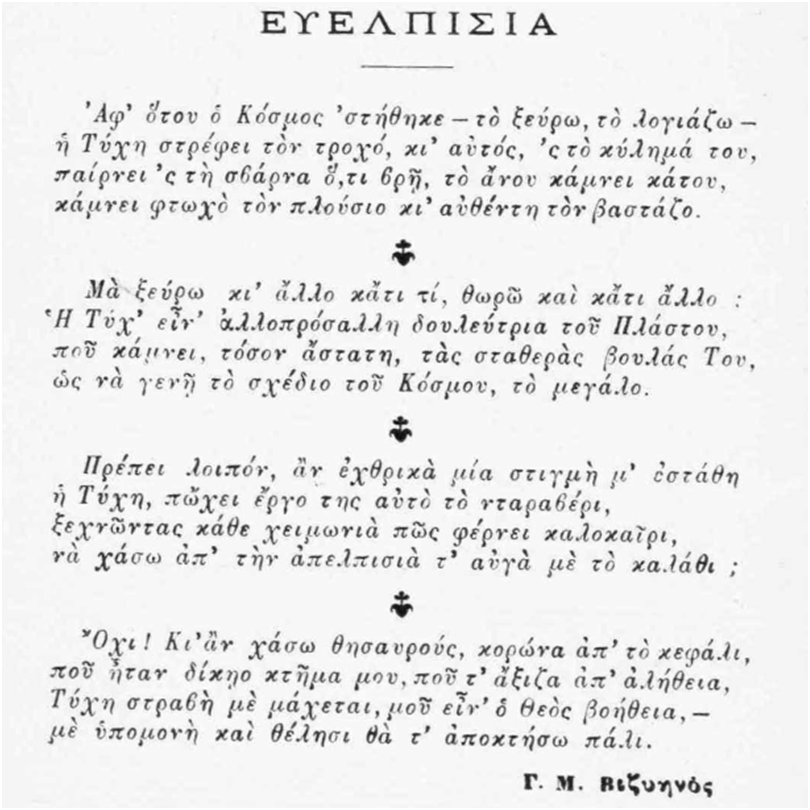 ΕΥΕΛΠΙΣΙΑ
Ἀφ' ὅτου ὁ Κόσμος 'στήθηκε — τὸ ξεύρω, τὸ λογιάζω —
ἡ Τύχη στρέφει τὸν τροχό, κι' αὐτός, 'ς τὸ κύλημά του,
παίρνει 'ς τὴ σβάρνα ὅ,τι βρῇ, τὸ ἄνου κάμνει κάτου,
κάμνει φτωχὸ τὸν πλούσιο κι' αὐθέντη τὸν βαστάζο.
Μὰ ξεύρω κι' ἄλλο κᾶτι τί, θωρῶ καὶ κᾶτι ἄλλο :
Ἡ Τύχ' εἶν' ἀλλοπρόσαλλη δουλεύτρια τοῦ Πλάστου,
ποῦ κάμνει, τόσον ἄστατη, τὰς σταθερὰς βουλάς Του,
ὡς νὰ γενῇ τὸ σχέδιο τοῦ Κόσμου, τὸ μεγάλο.
Πρέπει λοιπόν, ἂν ἐχθρικὰ μία στιγμὴ μ' ἐστάθη
ἡ Τύχη, πὤχει ἔργο της αὐτὸ τὸ νταραβέρι,
ξεχνῶντας κάθε χειμωνιὰ πῶς φέρνει καλοκαῖρι,
νὰ χάσω ἀπ' τὴν ἀπελπισιὰ τ' αὐγὰ μὲ τὸ καλάθι ;
Ὄχι! Κι' ἂν χάσω θησαυρούς, κορώνα ἀπ' τὸ κεφάλι,
ποῦ ἦταν δίκῃο κτῆμα μου, ποῦ τ' ἄξιζα ἀπ' ἀλήθεια,
Τύχη στραβὴ μὲ μάχεται, μοῦ εἶν' ὁ Θεὸς βοήθεια, —
μὲ ὑπομονὴ καὶ θέλησι θὰ τ' ἀποκτήσω πάλι.
Γ. Μ. Βιζυηνός